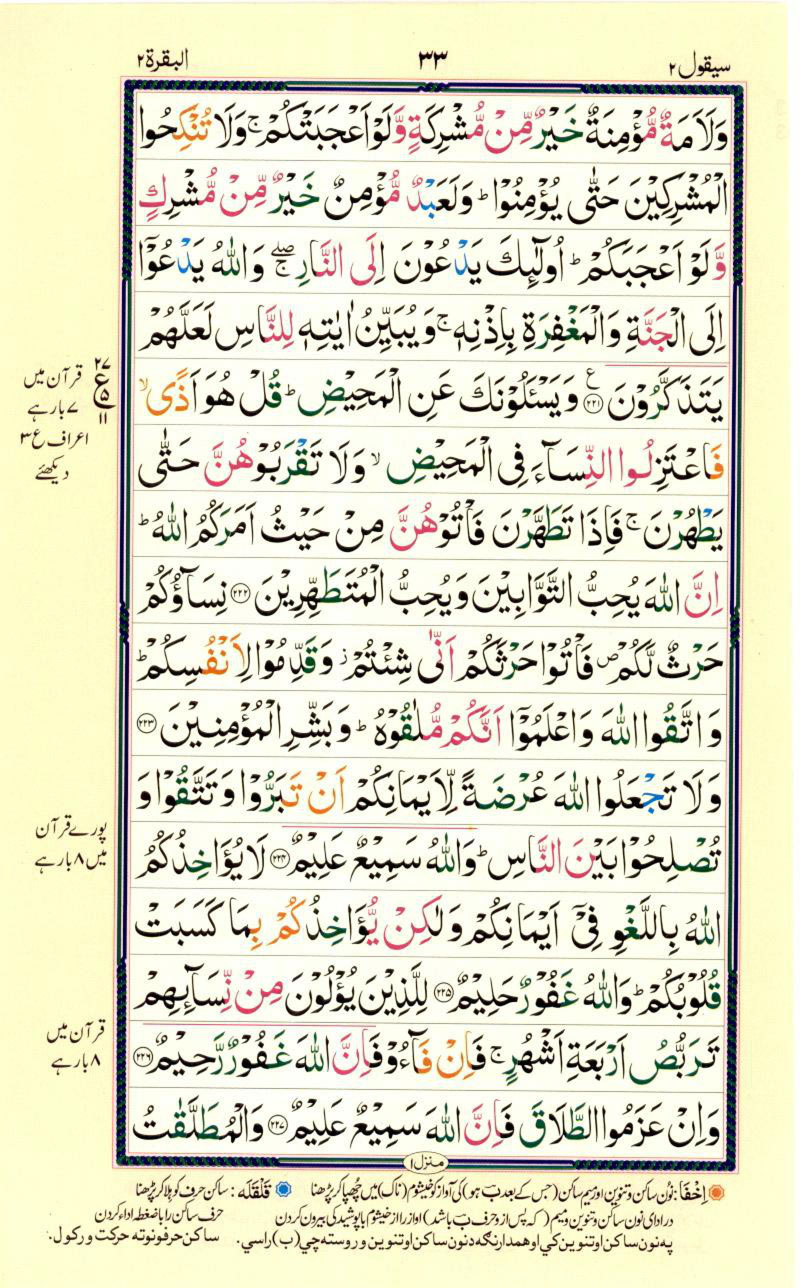 سیقول ۲
۳۳
البقرة ۲
وَلَاَمَةٌ مُّؤْمِنَةٌ خَيْرٌ مِّنْ مُّشْرِكَةٍ وَّلَوْ اَعْجَبَتْكُمْ ۚ وَلَا تُنْكِحُوا
الْمُشْرِكِيْنَ حَتّٰى يُؤْمِنُوْا ؕ وَلَعَبْدٌ مُّؤْمِنٌ خَيْرٌ مِّنْ مُّشْرِكٍ
وَّلَوْ اَعْجَبَكُمْ ؕ اُولٰٓئِكَ يَدْعُوْنَ اِلَى النَّارِ ۖۚ وَاللّٰهُ يَدْعُوْٓا
اِلَى الْجَنَّةِ وَالْمَغْفِرَةِ بِاِذْنِهٖ ۚ وَيُبَيِّنُ اٰيٰتِهٖ لِلنَّاسِ لَعَلَّهُمْ
يَتَذَكَّرُوْنَ ﴿۲۲۱﴾ ع وَيَسْـَٔلُوْنَكَ عَنِ الْمَحِيْضِ ؕ قُلْ هُوَ اَذًى ۙ
فَاعْتَزِلُوا النِّسَآءَ فِى الْمَحِيْضِ ۙ وَلَا تَقْرَبُوْهُنَّ حَتّٰى
يَطْهُرْنَ ۚ فَاِذَا تَطَهَّرْنَ فَاْتُوْهُنَّ مِنْ حَيْثُ اَمَرَكُمُ اللّٰهُ ؕ
اِنَّ اللّٰهَ يُحِبُّ التَّوَّابِيْنَ وَيُحِبُّ الْمُتَطَهِّرِيْنَ ﴿۲۲۲﴾ نِسَآؤُكُمْ
حَرْثٌ لَّكُمْ ۪ فَاْتُوْا حَرْثَكُمْ اَنّٰى شِئْتُمْ ؗ وَقَدِّمُوْا لِاَنْفُسِكُمْ ؕ
وَاتَّقُوا اللّٰهَ وَاعْلَمُوْٓا اَنَّكُمْ مُّلٰقُوْهُ ؕ وَبَشِّرِ الْمُؤْمِنِيْنَ ﴿۲۲۳﴾
وَلَا تَجْعَلُوا اللّٰهَ عُرْضَةً لِّاَيْمَانِكُمْ اَنْ تَبَرُّوْا وَتَتَّقُوْا وَ
تُصْلِحُوْا بَيْنَ النَّاسِ ؕ وَاللّٰهُ سَمِيْعٌ عَلِيْمٌ ﴿۲۲۴﴾ لَا يُؤَاخِذُكُمُ
اللّٰهُ بِاللَّغْوِ فِىْٓ اَيْمَانِكُمْ وَلٰكِنْ يُّؤَاخِذُكُمْ بِمَا كَسَبَتْ
قُلُوْبُكُمْ ؕ وَاللّٰهُ غَفُوْرٌ حَلِيْمٌ ﴿۲۲۵﴾ لِلَّذِيْنَ يُؤْلُوْنَ مِنْ نِّسَآئِهِمْ
تَرَبُّصُ اَرْبَعَةِ اَشْهُرٍ ۚ فَاِنْ فَآءُوْ فَاِنَّ اللّٰهَ غَفُوْرٌ رَّحِيْمٌ ﴿۲۲۶﴾
وَاِنْ عَزَمُوا الطَّلَاقَ فَاِنَّ اللّٰهَ سَمِيْعٌ عَلِيْمٌ ﴿۲۲۷﴾ وَالْمُطَلَّقٰتُ
۲۷
ع
۵
۱۱
قرآن میں
۷ بار ہے
اعراف ع ۳
دیکھئے
پورے قرآن
میں ۸ بار ہے
قرآن میں
۸ بار ہے
منزل ۱
اِخْفَا: نُون ساکن و تنوین اور میم ساکن (جس کے بعد ب ہو) کی آواز کو خیشوم (ناک) میں چُھپا کر پڑھنا
قَلْقَلَه: ساکن حرف کو ہلا کر پڑھنا
در ادای نون ساکن و تنوین و میم (که پس از و حرف ب باشد) اواز را از خیشوم با پوشیدگی بیرون کردن
حرف ساکن را با ضغطه اداء کردن
په نون ساکن او تنوین کې او همدارنګه د نون ساکن او تنوین و روسته چې (ب) راسي.
ساکن حرفونو ته حرکت ورکول.